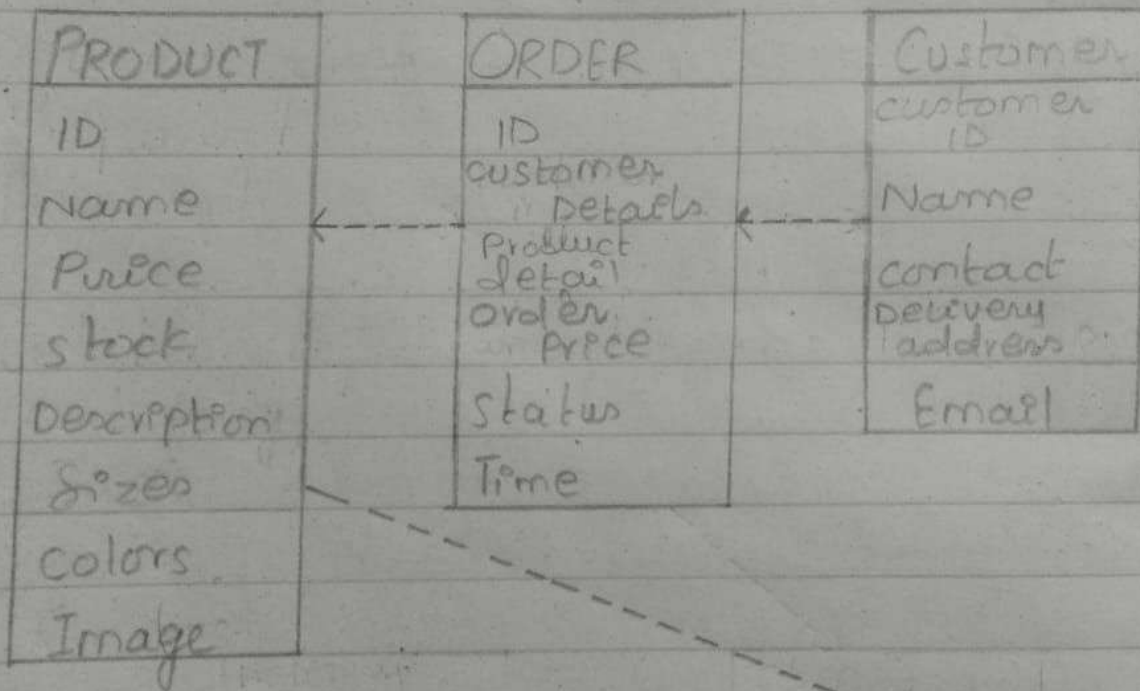 PRODUCT
ID
Name
Price
stock
Description
Sizes
colors
Image
ORDER
ID
customer
Details
Product
detail
order
Price
Status
Time
Customer
customer
ID
Name
contact
Delivery
address
Email